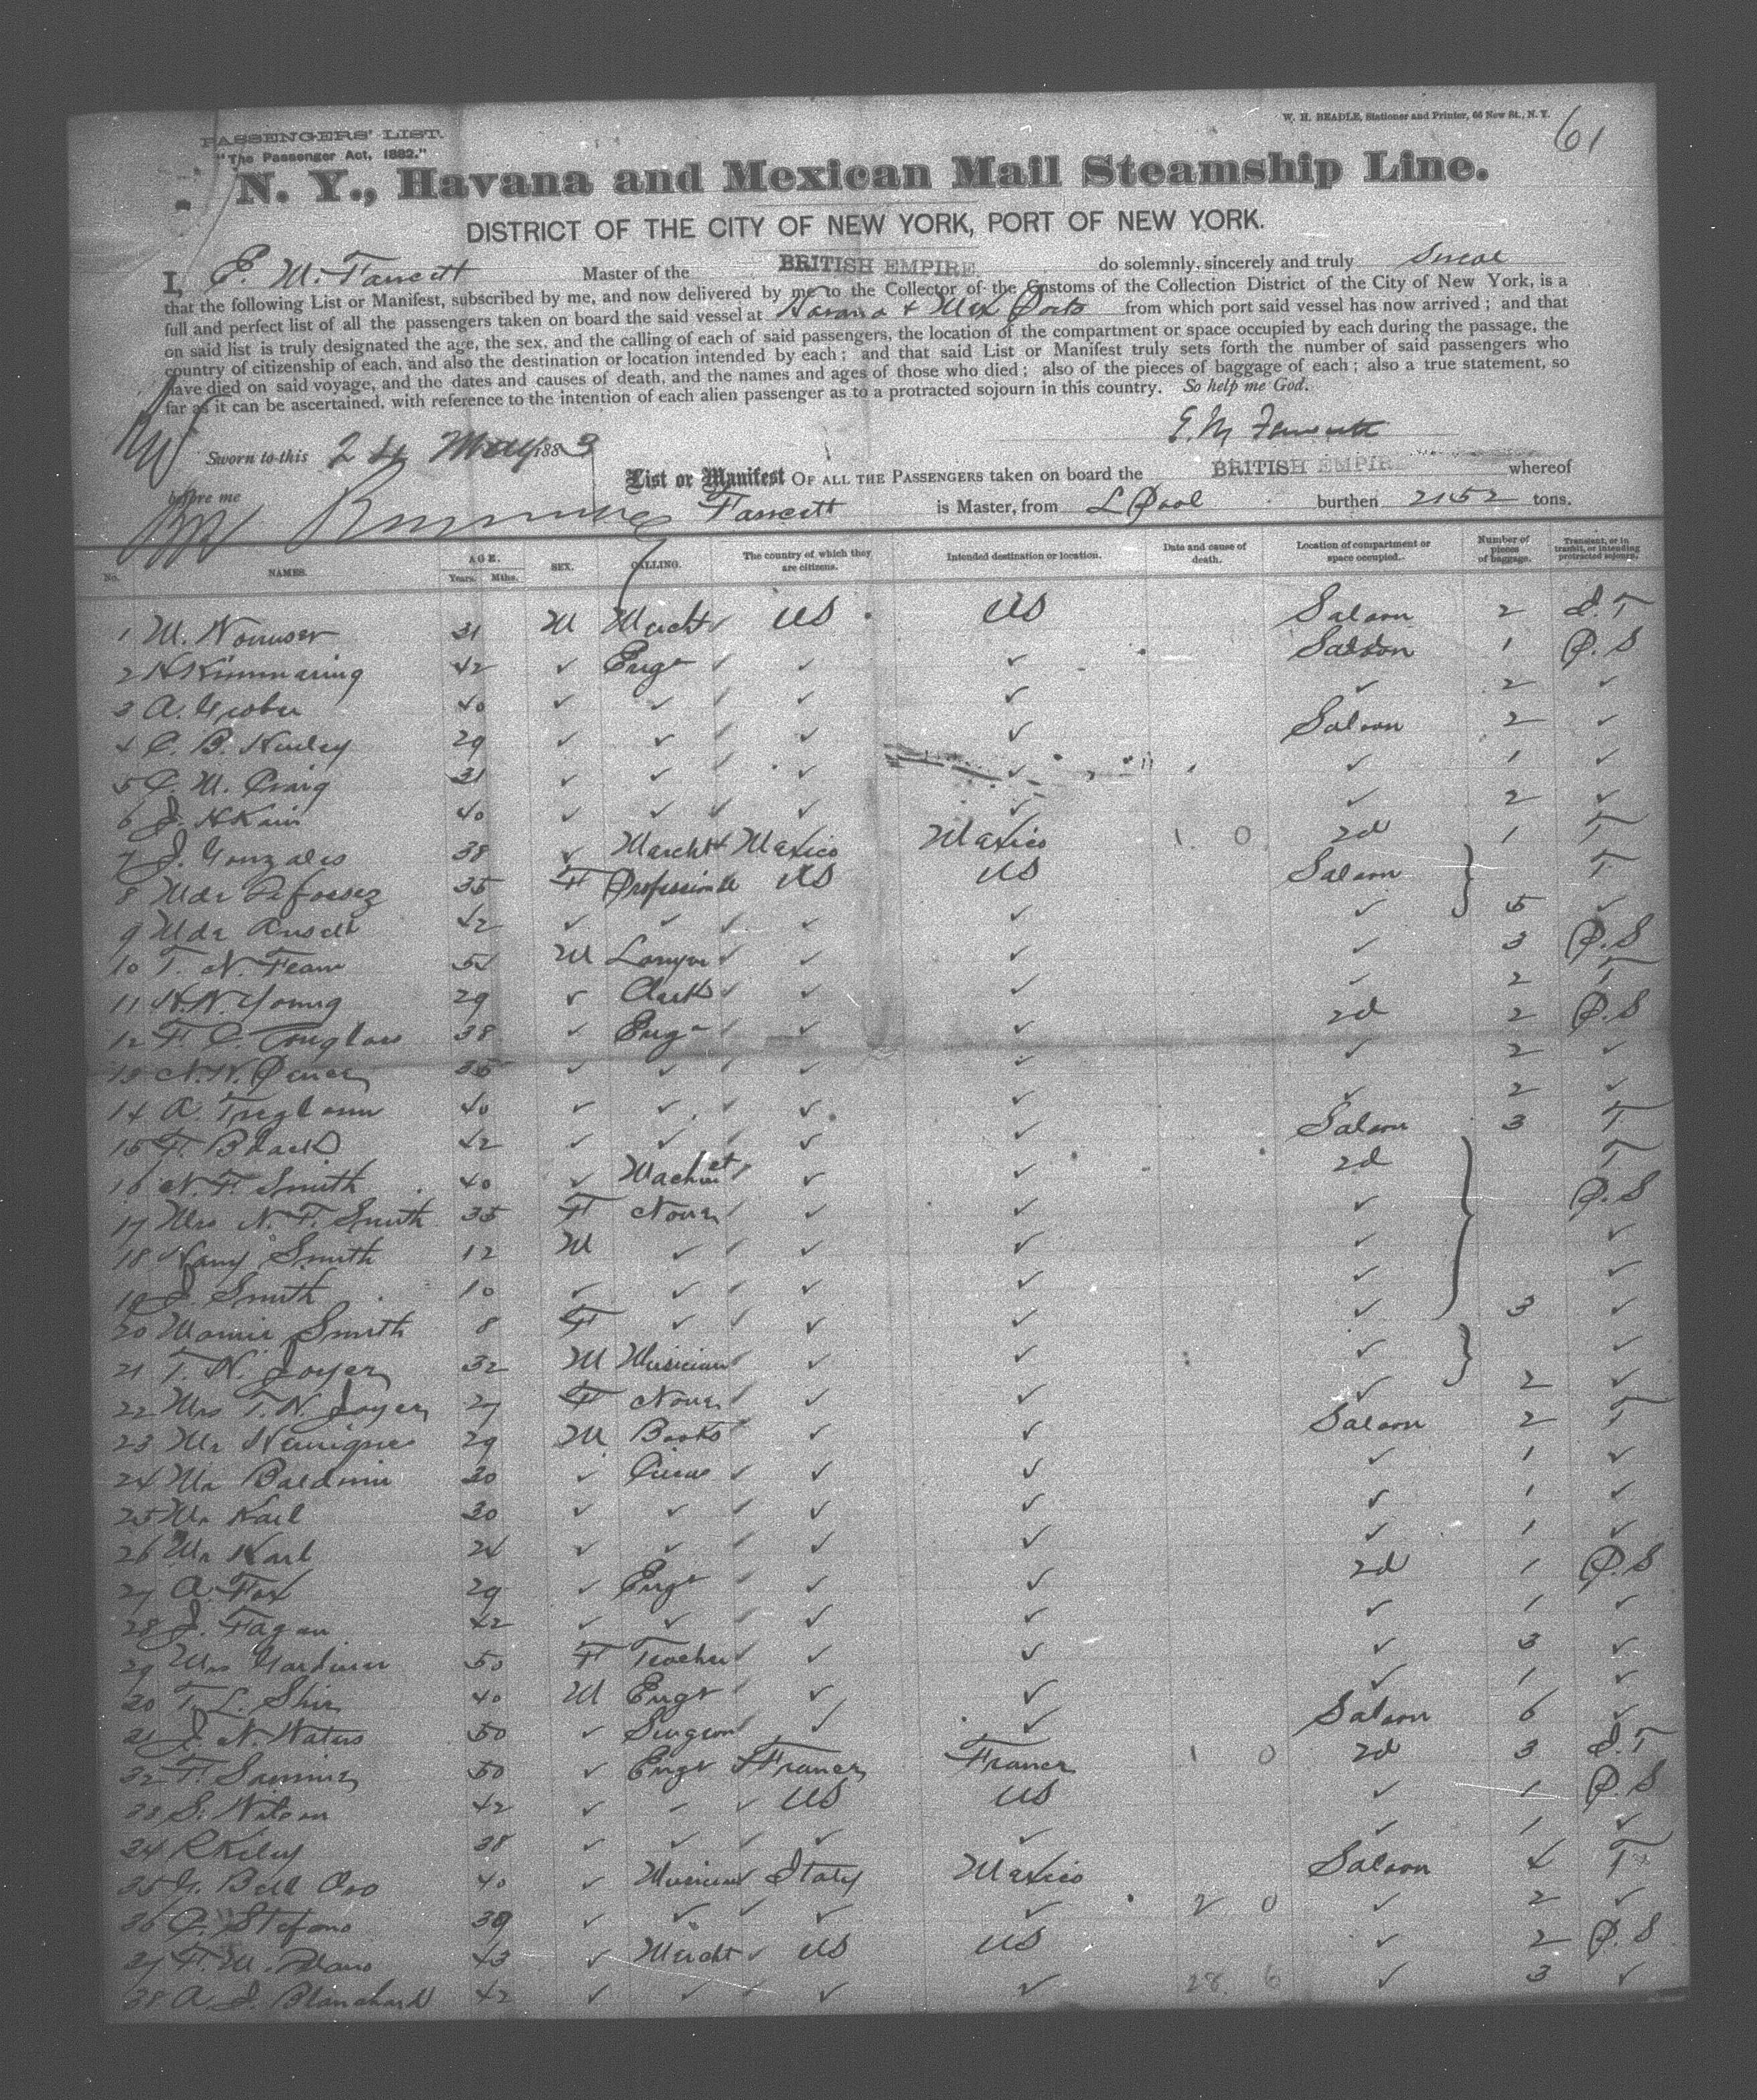 W. H. BEADLE, Stationer and Printer, 66 New St., N. Y.
61
PASSENGERS' LIST.
"The Passenger Act, 1882."
N. Y., Havana and Mexican Mail Steamship Line.
DISTRICT OF THE CITY OF NEW YORK, PORT OF NEW YORK.
I, E. M. Fawcett Master of the BRITISH EMPIRE do solemnly, sincerely and truly Swear
that the following List or Manifest, subscribed by me, and now delivered by me to the Collector of the Customs of the Collection District of the City of New York, is a
full and perfect list of all the passengers taken on board the said vessel at Havana & Mex Ports from which port said vessel has now arrived; and that
on said list is truly designated the age, the sex, and the calling of each of said passengers, the location of the compartment or space occupied by each during the passage, the
country of citizenship of each, and also the destination or location intended by each; and that said List or Manifest truly sets forth the number of said passengers who
have died on said voyage, and the dates and causes of death, and the names and ages of those who died; also of the pieces of baggage of each; also a true statement, so
far as it can be ascertained, with reference to the intention of each alien passenger as to a protracted sojourn in this country. So help me God.
E. M. Fawcett
Sworn to this 24 May 1883
before me
List or Manifest OF ALL THE PASSENGERS taken on board the BRITISH EMPIRE whereof
Fawcett is Master, from LPool burthen 2152 tons.
No. NAMES. AGE. Years. Mths. SEX. CALLING. The country of which they are citizens. Intended destination or location. Date and cause of death. Location of compartment or space occupied. Number of pieces of baggage. Transient, or in transit, or intending protracted sojourn.
1 M. 31 M Mercht ✓ US US Saloon 2 T
2 42 ✓ Engr ✓ ✓ ✓ Saloon 1 P.S
3 A. 40 ✓ ✓ ✓ ✓ ✓ ✓ 2 ✓
4 C. B. 29 ✓ ✓ ✓ ✓ ✓ Saloon 2 ✓
5 C. M. Craig 31 ✓ ✓ ✓ ✓ ✓ ✓ 1 ✓
6 J. H Kain 40 ✓ ✓ ✓ ✓ ✓ ✓ 2 ✓
7 J. Gonzales 38 ✓ Marcht Mexico Mexico 1 0 2d 1 T
8 Mde 35 F Professional US US Saloon T
9 Mde 42 ✓ ✓ ✓ ✓ ✓ ✓ 5 ✓
10 T. N. 54 M Lawyer ✓ ✓ ✓ ✓ 3 P.S
11 H. N. Young 29 ✓ Clerk ✓ ✓ ✓ ✓ 2 T
12 F. C. Douglass 38 ✓ Engr ✓ ✓ ✓ 2d 2 P.S
13 N. N. 35 ✓ ✓ ✓ ✓ ✓ ✓ 2 ✓
14 A. 40 ✓ ✓ ✓ ✓ ✓ ✓ 2 ✓
15 F. Black 42 ✓ ✓ ✓ ✓ ✓ Saloon 3 T
16 N. F. Smith 40 ✓ Machinist ✓ ✓ ✓ 2d T
17 Mrs N. F. Smith 35 F None ✓ ✓ ✓ ✓ P.S
18 Harry Smith 12 M ✓ ✓ ✓ ✓ ✓ ✓
19 J. Smith 10 ✓ ✓ ✓ ✓ ✓ ✓ ✓
20 Mamie Smith 8 F ✓ ✓ ✓ ✓ ✓ 3 ✓
21 T. N. Joyer 32 M Musician ✓ ✓ ✓ ✓ ✓
22 Mrs T. N. Joyer 27 F None ✓ ✓ ✓ ✓ 2 ✓
23 Mr 29 M ✓ ✓ Saloon 2 T
24 Mr Baldwin 30 ✓ Circus ✓ ✓ ✓ ✓ 1 ✓
25 Mr Karl 30 ✓ ✓ ✓ ✓ ✓ 1 ✓
26 Mr Karl 24 ✓ ✓ ✓ ✓ ✓ 1 ✓
27 A. Fox 29 ✓ Engr ✓ ✓ ✓ 2d 1 P.S
28 J. Fagan 42 ✓ ✓ ✓ ✓ ✓ ✓ 1 ✓
29 Mrs Gardiner 50 F Teacher ✓ ✓ ✓ ✓ 3 ✓
30 T. L. 40 M Engr ✓ ✓ ✓ ✓ 1 ✓
31 J. N. Waters 50 ✓ Surgeon ✓ ✓ ✓ Saloon 6 ✓
32 F. 50 ✓ Engr France France 1 0 2d 3 T
33 S. Wilson 42 ✓ ✓ ✓ US US ✓ 1 P.S
34 R Kiley 38 ✓ ✓ ✓ ✓ ✓ ✓ 1 ✓
35 G. Bell 40 ✓ Musician Italy Mexico Saloon 4 T
36 Stefano 39 ✓ ✓ ✓ ✓ 2 0 ✓ 2 ✓
37 F. M. 43 ✓ Mercht ✓ US US ✓ 2 P.S
38 A. J. Blanchard 42 ✓ ✓ ✓ ✓ ✓ 28. 6 ✓ 3 ✓